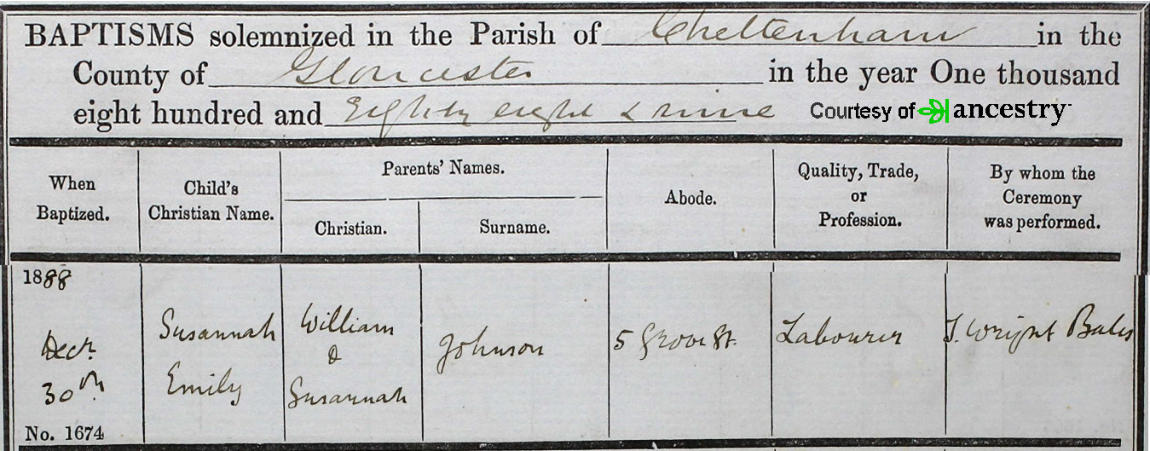 BAPTISMS solemnized in the Parish of Cheltenham in the
County of Gloucester in the year One thousand
eight hundred and Eighty eight & nine Courtesy of ancestry
When Baptized.
Child's Christian Name.
Parents' Names.
Christian.
Surname.
Abode.
Quality, Trade, or Profession.
By whom the Ceremony was performed.
1888
Decr
30th
No. 1674
Susannah
Emily
William
&
Susannah
Johnson
5 Grove St.
Labourer
J. Wright Bates